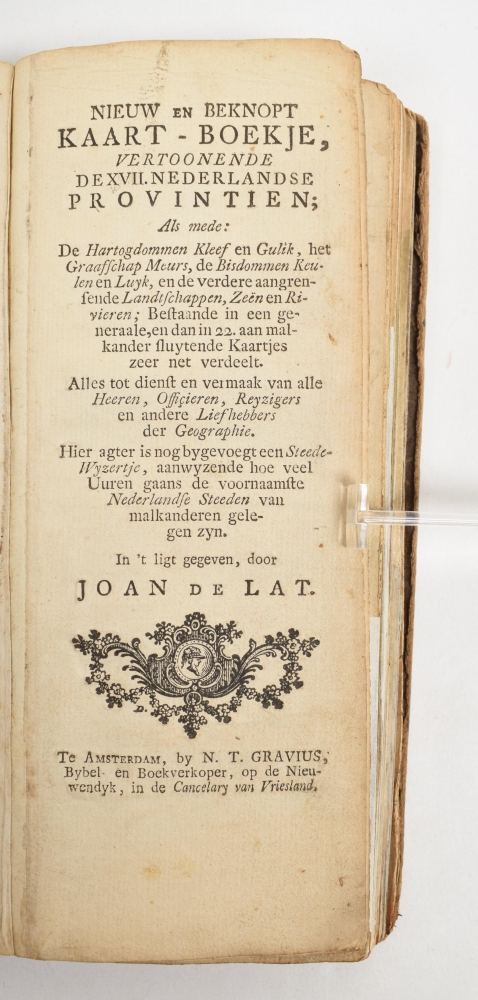 NIEUW EN BEKNOPT
KAART - BOEKJE,
VERTOONENDE
DE XVII. NEDERLANDSE
PROVINTIEN;
Als mede:
De Hartogdommen Kleef en Gulik, het
Graafſchap Meurs, de Bisdommen Keu-
len en Luyk, en de verdere aangren-
ſende Landtſchappen, Zeën en Ri-
vieren; Beſtaande in een ge-
neraale, en dan in 22. aan mal-
kander ſluytende Kaartjes
zeer net verdeelt.
Alles tot dienſt en vermaak van alle
Heeren, Officieren, Reyzigers
en andere Liefhebbers
der Geographie.
Hier agter is nog bygevoegt een Steede-
Wyzertje, aanwyzende hoe veel
Uuren gaans de voornaamſte
Nederlandſe Steeden van
malkanderen gele-
gen zyn.
In 't ligt gegeven, door
JOAN DE LAT.
Te AMSTERDAM, by N. T. GRAVIUS,
Bybel- en Boekverkoper, op de Nieu-
wendyk, in de Cancelary van Vriesland.